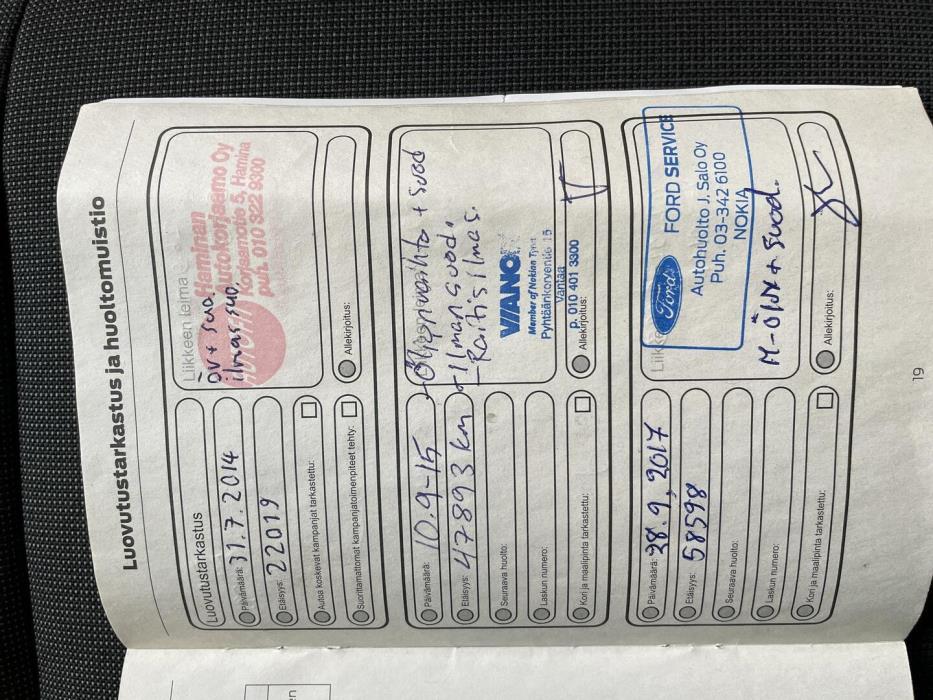 Luovutustarkastus ja huoltomuistio
Luovutustarkastus
Päivämäärä: 31.7.2014
Etäisyys: 22019
Autoa koskevat kampanjat tarkastettu:
Suorittamattomat kampanjatoimenpiteet tehty:
Liikkeen leima
Haminan
Autokorjaamo Oy
Korjaamotie 5, Hamina
puh. 010 322 9300
ÖV + suo.
ilmas.suo.
Allekirjoitus:
Päivämäärä: 10.9-15
Etäisyys: 47893 km
Seuraava huolto:
Laskun numero:
Kori ja maalipinta tarkastettu:
- Öljynvaihto + suod
- Ilmansuod.
- Raitis ilmas.
VIANOR
Member of Nokian Tyres
Pyhtäänkorventie 15
Vantaa
p. 010 401 3300
Allekirjoitus:
Päivämäärä: 28.9.2017
Etäisyys: 58598
Seuraava huolto:
Laskun numero:
Kori ja maalipinta tarkastettu:
Liik
Ford
FORD SERVICE
Autohuolto J. Salo Oy
Puh. 03-342 6100
NOKIA
M-Öljy + suod.
Allekirjoitus:
19
en